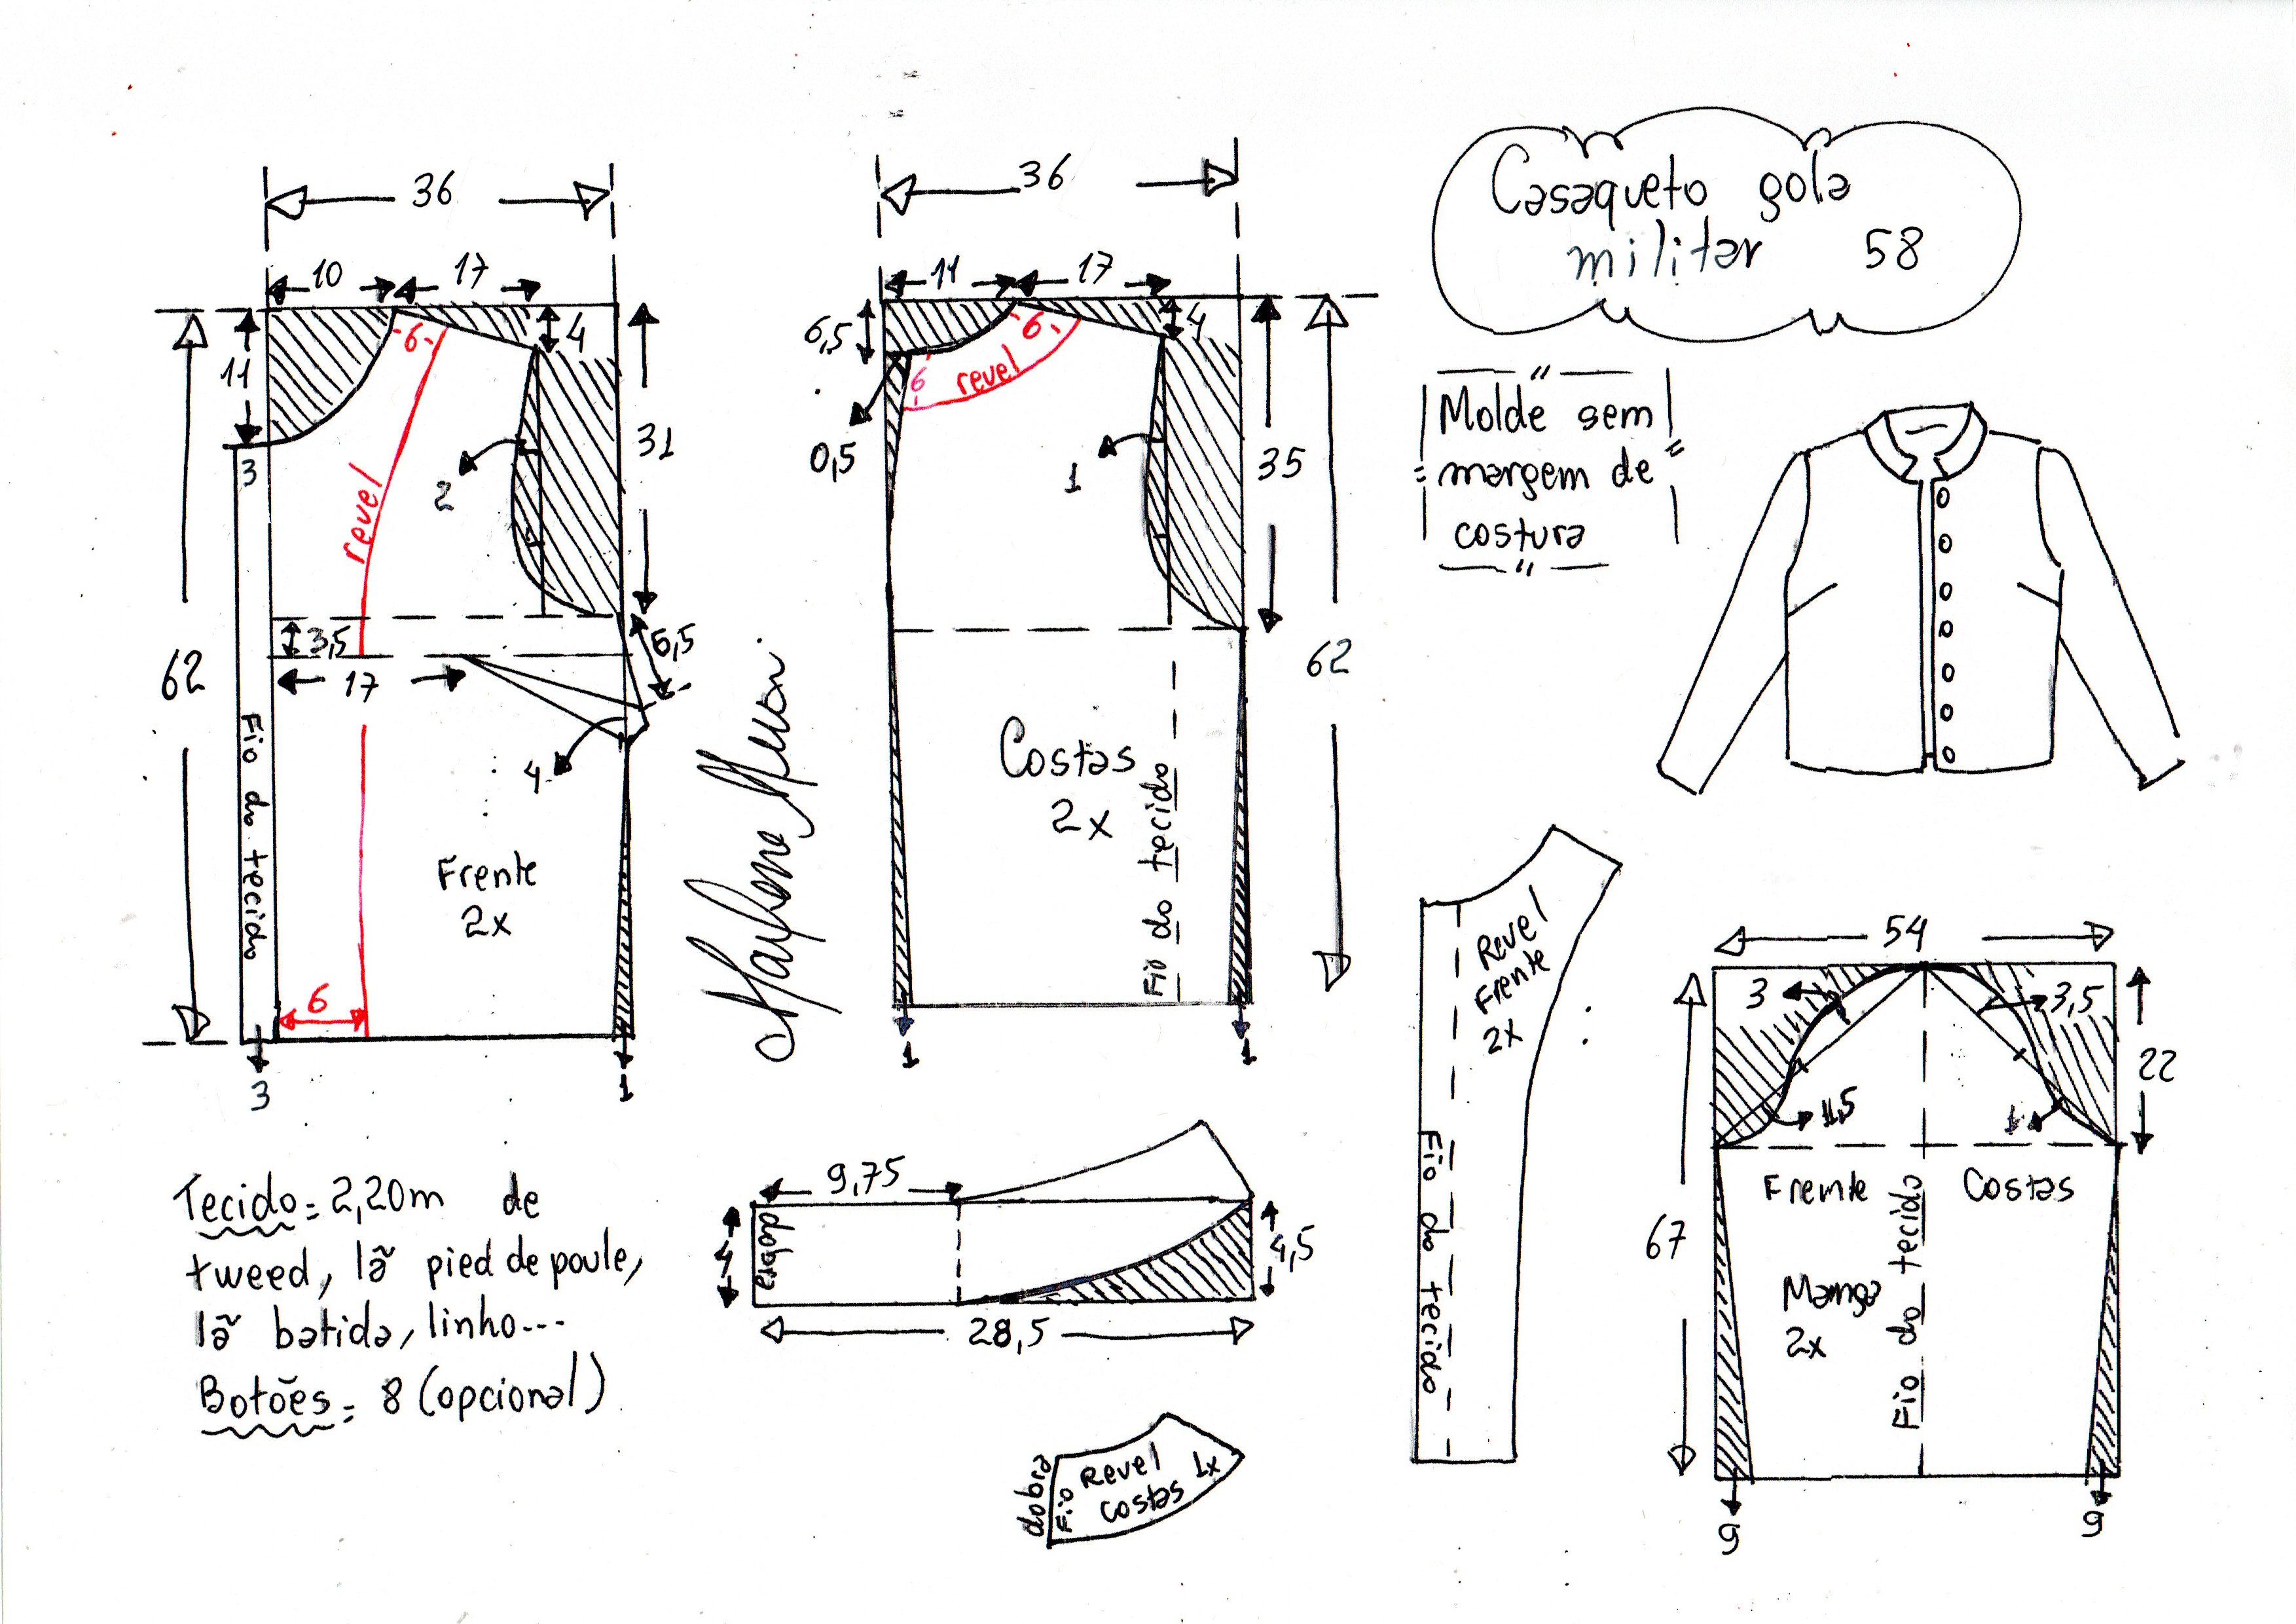 Casaqueto gola
militar 58
Molde sem
margem de
costura
36
10
17
4
11
6
3
revel
2
31
3,5
17
6,5
4
62
Fio do tecido
Frente
2x
6
3
1
36
11
17
6,5
4
6
6
revel
0,5
1
35
62
Costas
2x
Fio do tecido
1
1
Tecido = 2,20m de
tweed, lã pied de poule,
lã batida, linho---
Botões = 8 (opcional)
9,75
4
dobra
4,5
28,5
dobra
Fio
Revel
costas
1x
Revel
Frente
2x
Fio do tecido
54
3
3,5
22
1,5
1
Frente
Costas
67
Manga
2x
Fio do tecido
9
9